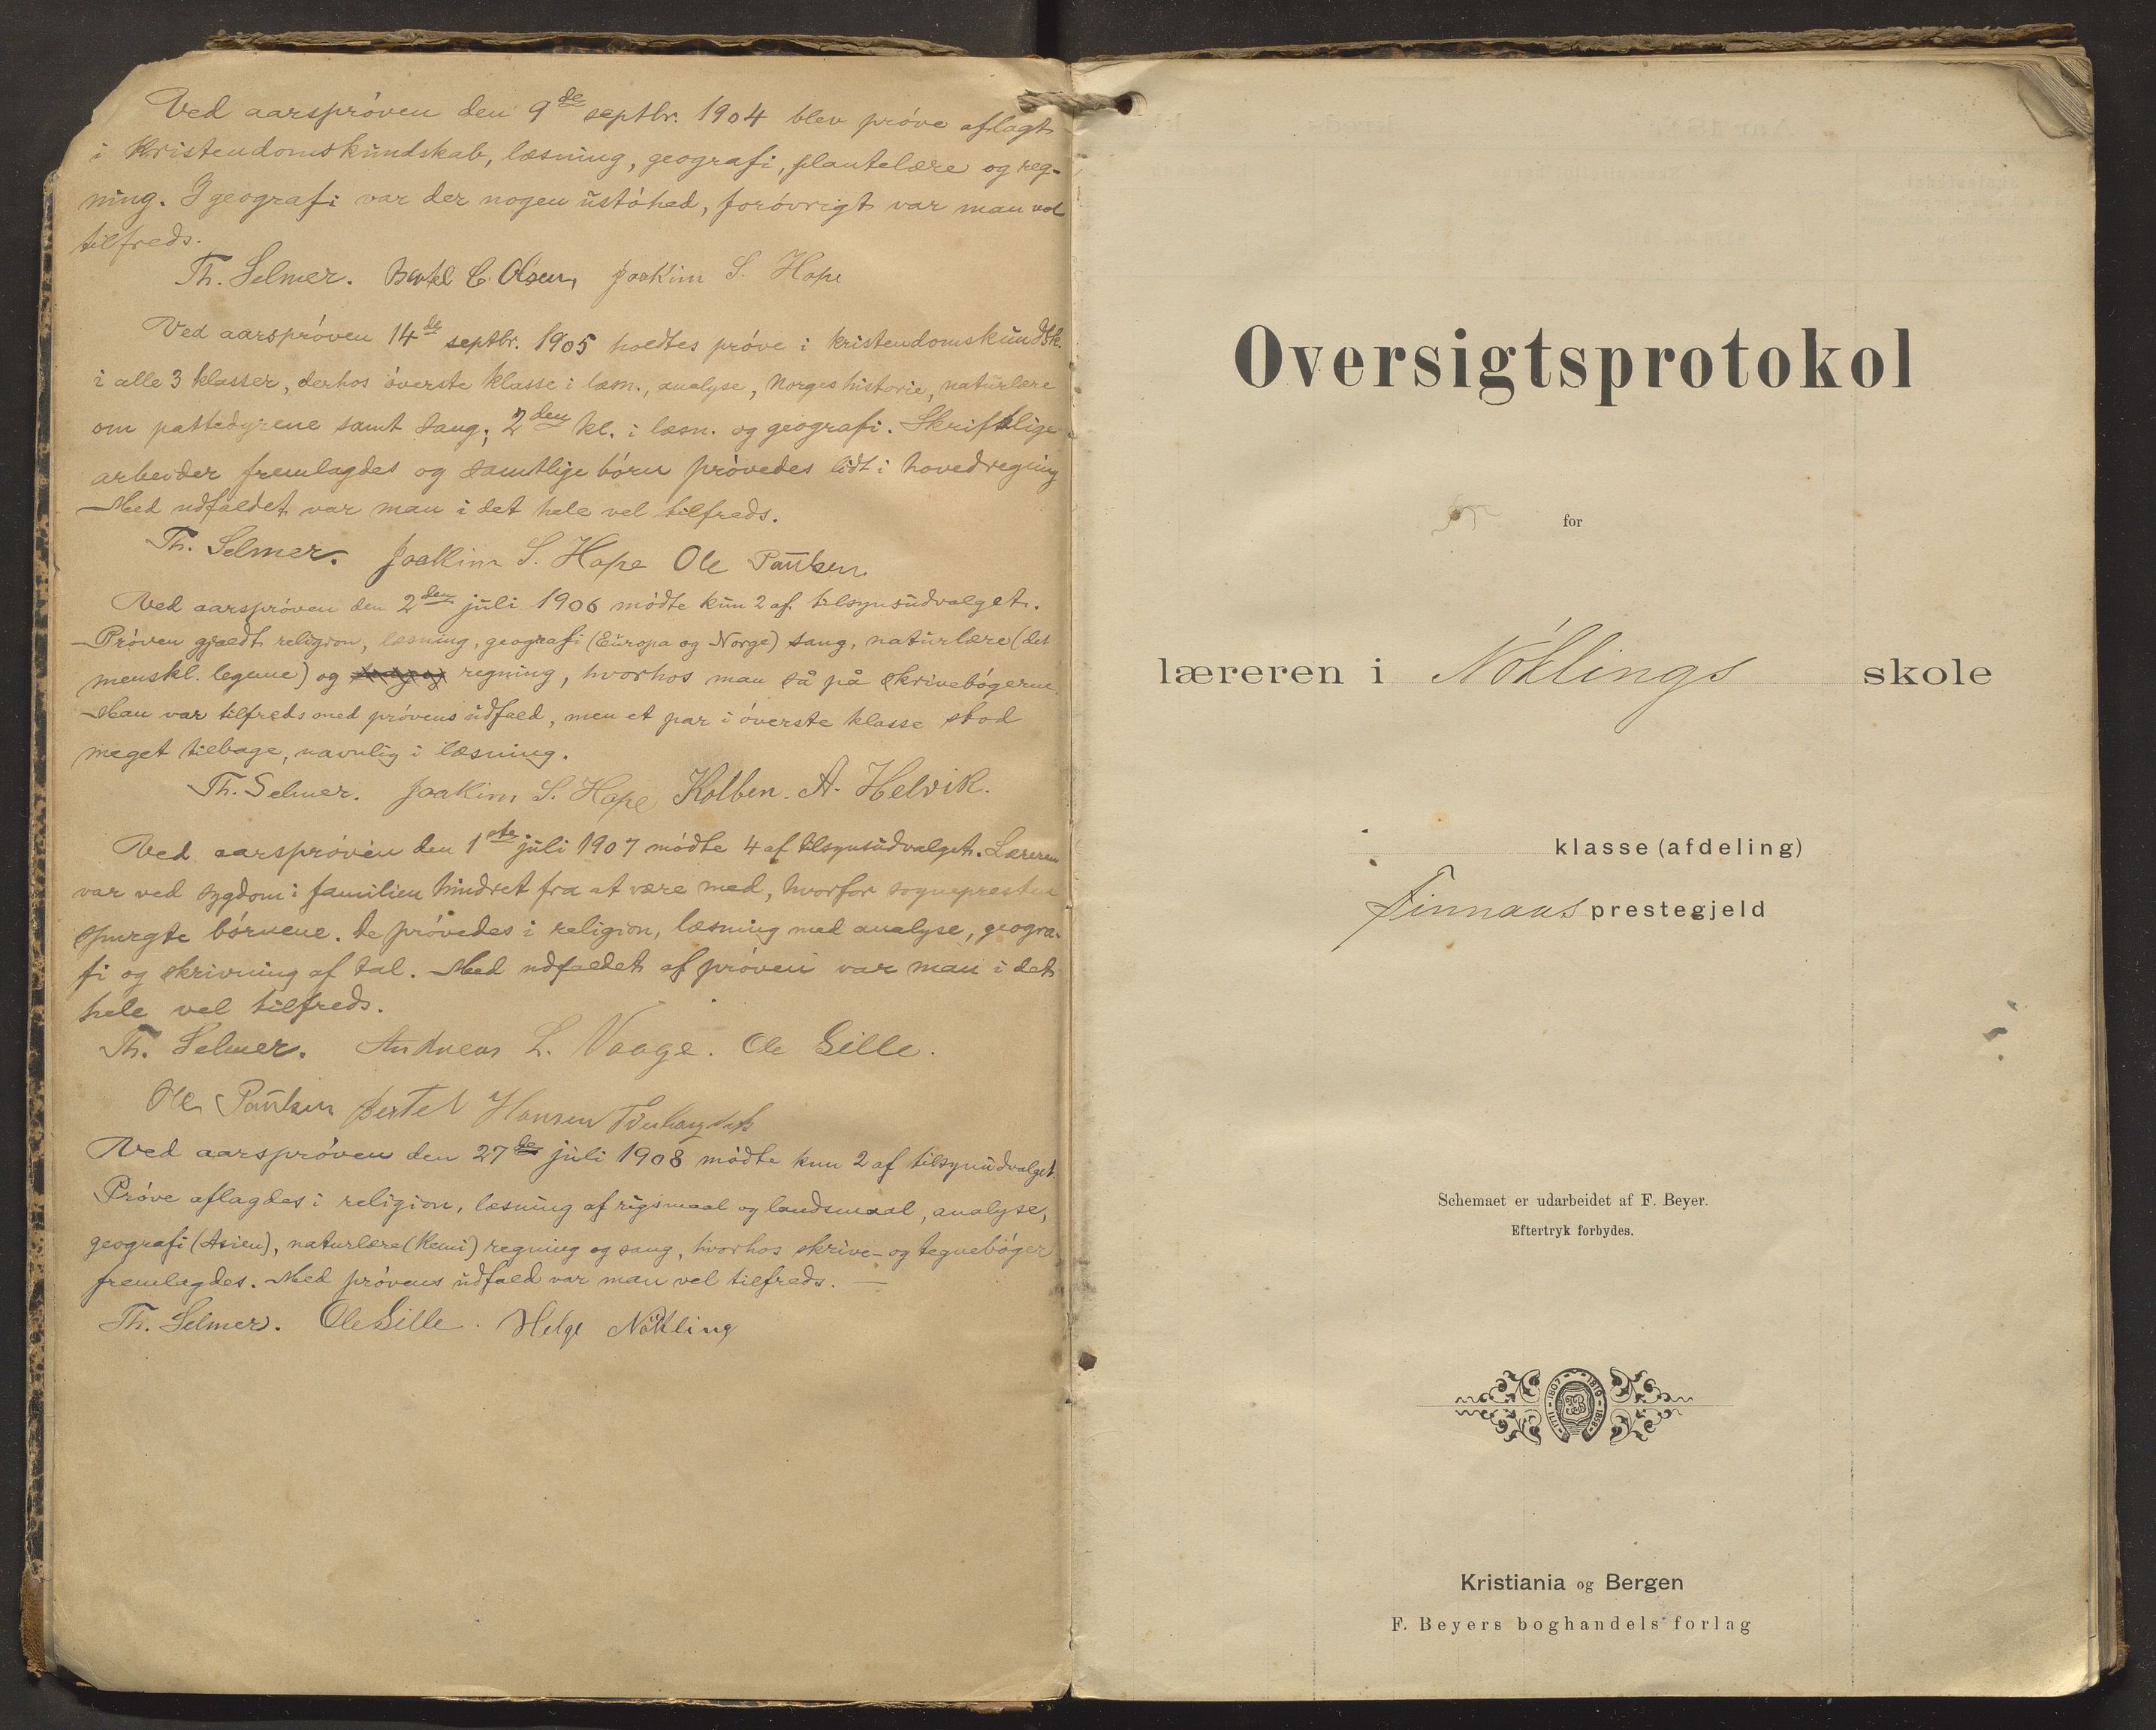 Ved aarsprøven den 9de septbr. 1904 blev prøve aflagt
i Kristendomskundskab, læsning, geografi, plantelære og reg-
ning. I geografi var der nogen ustøhed, forøvrigt var man vel
tilfreds.
Th. Selmer. Bertel C. Olsen, Joakim S. Hope
Ved aarsprøven 14de septbr. 1905 holdtes prøve i kristendomskundsk.
i alle 3 klasser, derhos øverste klasse i læsn., analyse, Norges historie, naturlære
om pattedyrene samt sang; 2den kl. i læsn. og geografi. Skriftlige
arbeider fremlagdes og samtlige børn prøvedes lidt i hovedregning
Med udfaldet var man i det hele vel tilfreds.
Th. Selmer. Joakim S. Hope Ole Paulsen
Ved aarsprøven den 2den juli 1906 mødte kun 2 af tilsynsudvalget.
Prøven gjældt religion, læsning, geografi (Europa og Norge) sang, naturlære (det
menskl. legeme) og regning, hvorhos man så på skrivebøgerne.
Man var tilfreds med prøvens udfald, men et par i øverste klasse stod
meget tilbage, navnlig i læsning.
Th. Selmer. Joakim S. Hope Kolben. A. Helvik.
Ved aarsprøven den 1ste juli 1907 mødte 4 af tilsynsudvalget. Læreren
var ved sygdom i familien hindret fra at være med, hvorfor sognepresten
spurgte børnene. De prøvedes i religion, læsning med analyse, geogra-
fi og skrivning af tal. Med udfaldet af prøven var man i det
hele vel tilfreds.
Th. Selmer. Andreas L. Vaage. Ole Gille.
Ole Paulsen Bertel Hansen
Ved aarsprøven den 27de juli 1908 mødte kun 2 af tilsynudvalget.
Prøve aflagdes i religion, læsning af rigsmaal og landsmaal, analyse,
geografi (Asien), naturlære (Kemi) regning og sang, hvorhos skrive- og tegnebøger
fremlagdes. Med prøvens udfald var man vel tilfreds. —
Th. Selmer. Ole Gille. Helge Nøkling
Oversigtsprotokol
for
læreren i Nøklings skole
klasse (afdeling)
Finnaas prestegjeld
Schemaet er udarbeidet af F. Beyer.
Eftertryk forbydes.
1771 - 1807 - 1819 - 1868
Kristiania og Bergen
F. Beyers boghandels forlag